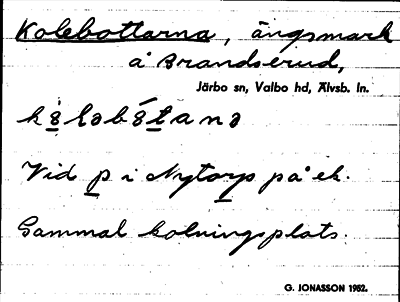 Kolebottarna, ängsmark
å Brandserud,
Järbo sn, Valbo hd, Älvsb. ln.
Vid p i Nytorps på ek.
Gammal kolningsplats.
G. JONASSON 1952.